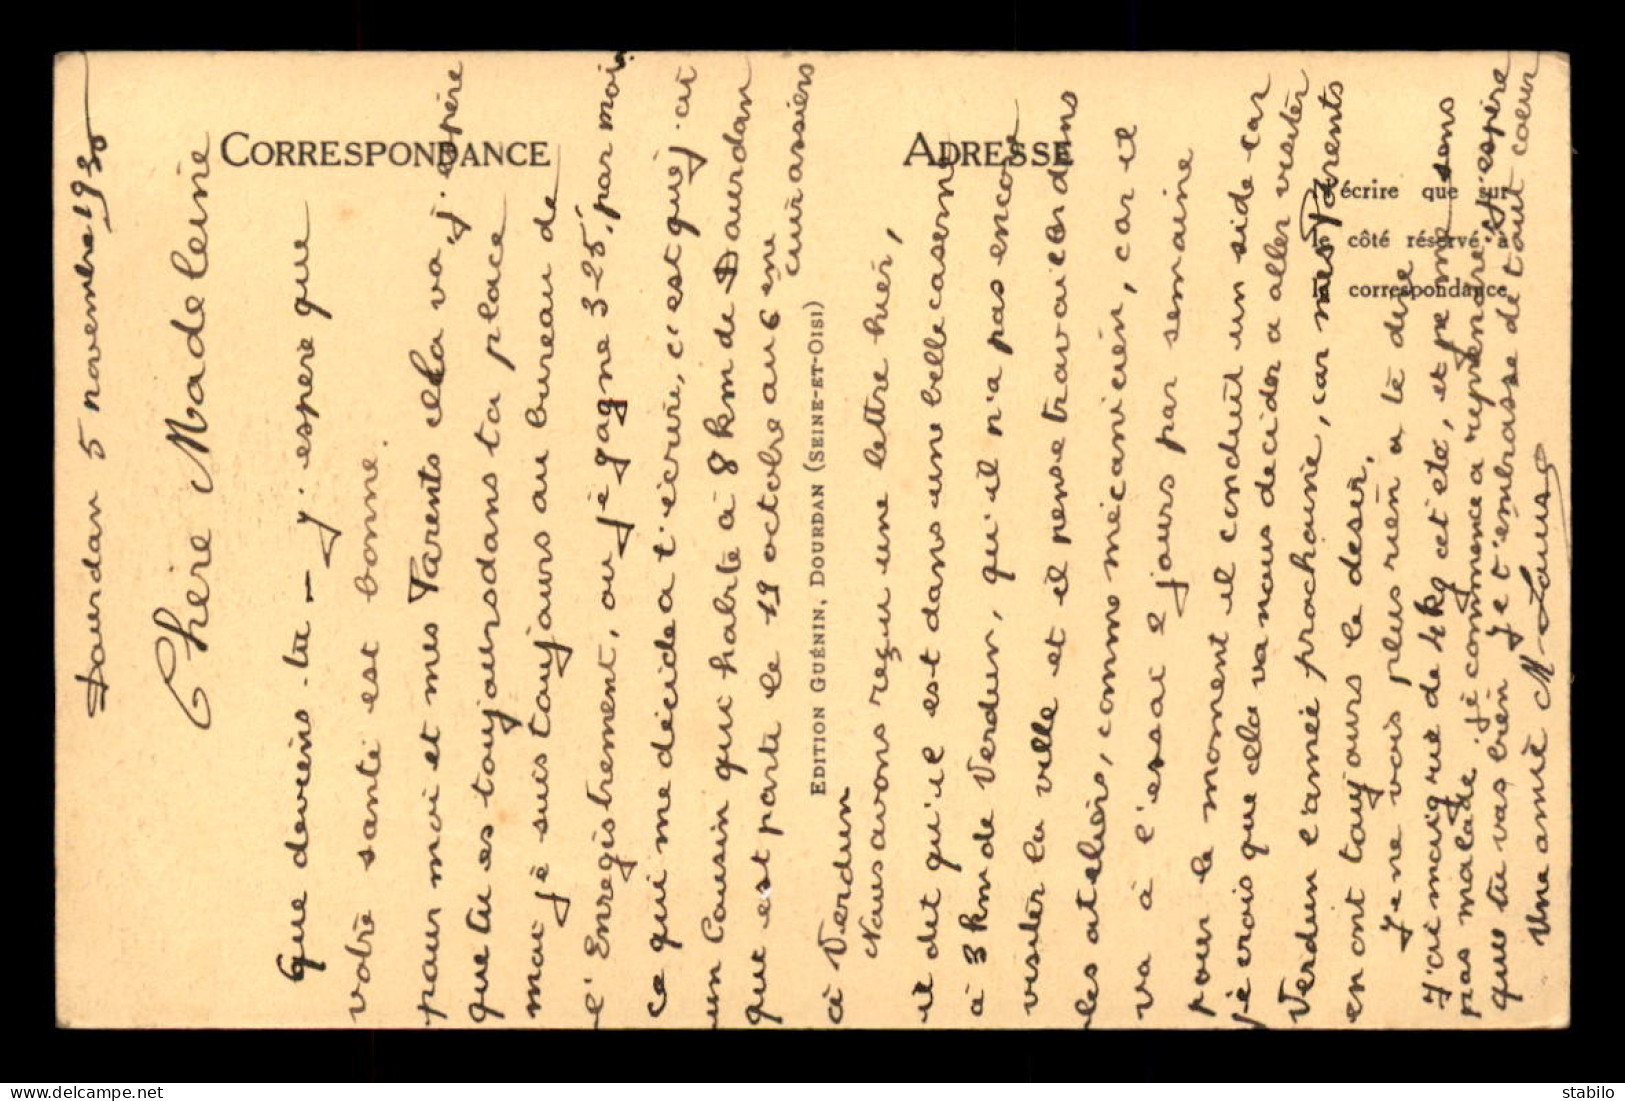 Dourdan 5 novembre 1930
Chère Madeleine
Que deviens-tu — j'espère que
votre santé est bonne.
pour moi et mes Parents cela va, j'espère
que tu es toujours dans ta place
moi je suis toujours au bureau de
l'Enregistrement, ou je gagne 325, par mois
ce qui me décide a t'écrire, c'est que j'ai
un Cousin qui habite à 8 km de Dourdan
que est parti le 19 octobre au 6 eme
cuirassiers
à Verdun
Nous avons reçu une lettre hier,
il dit qu'il est dans une belle caserne
à 3 km de Verdun, qu'il n'a pas encore
visiter la ville et il pense travailler dans
les ateliers, comme mécanicien, car il
va à l'essai 2 jours par semaine
pour le moment il conduit un side car
je crois que cela va nous decider a aller visiter
Verdun l'année prochaine, car mes Parents
en ont toujours le desir.
Je ne vois plus rien a te dire
J'ai maigrie de 4 kg cet été, et je me sens
pas malade je commence a reprendre et j'espère
que tu vas bien je t'embrasse de tout coeur
Une amie M-Louise
CORRESPONDANCE
ADRESSE
N'écrire que sur
le côté réservé à
la correspondance
EDITION GUÉNIN, DOURDAN (SEINE-ET-OISE)
delcampe.net
stabilo